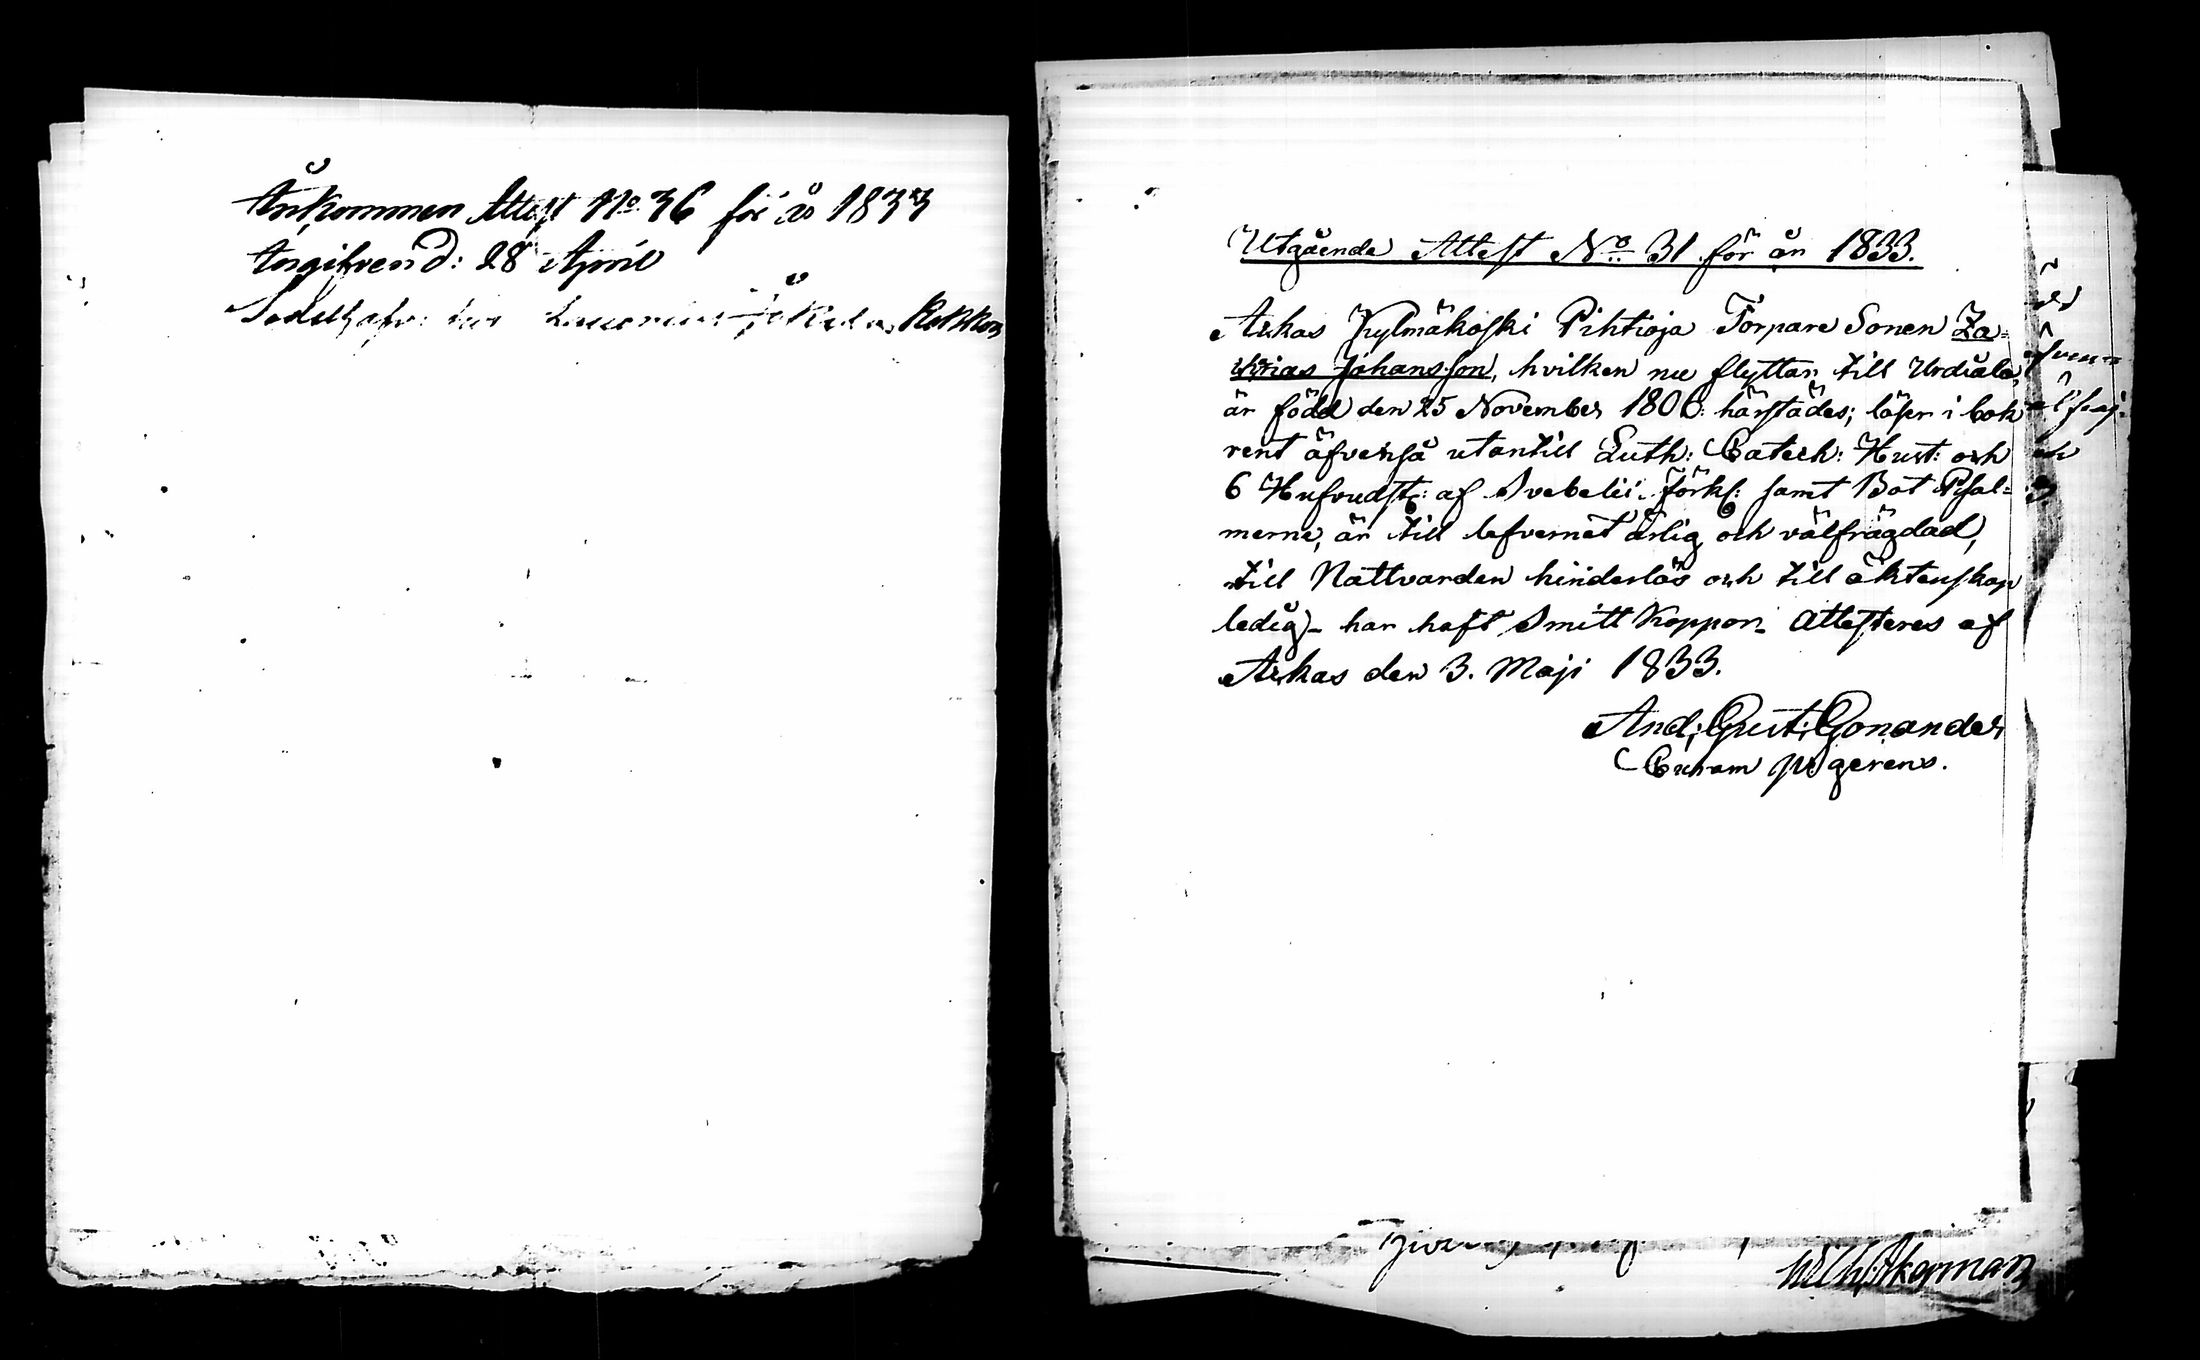 Ankommen Attest No 36 för år 1833
Angifven d: 28 April
Kokkon
Utgående Attest No 31 för år 1833.
Arkas Kylmäkoski Pihtioja Torpare Sonen Za=
chrias Johansson, hvilken nu flyttar till Urdiala,
är född den 25 November 1806: härstädes; läser i bok
rent äfvenså utantill Luth: Catech: Hust: och
6 Hufvudst: af Svebelii Förkl: samt Bot Psal=
merne, är till lefvernet ärlig och välfrägdad,
till Nattvarden hinderlös och till äktenskap
ledig – har haft Smitt Koppor. Attesteres af
Arkas den 3. Maji 1833.
And: Gust: Gonander
Curam gerens.
Wilh: Åkerman